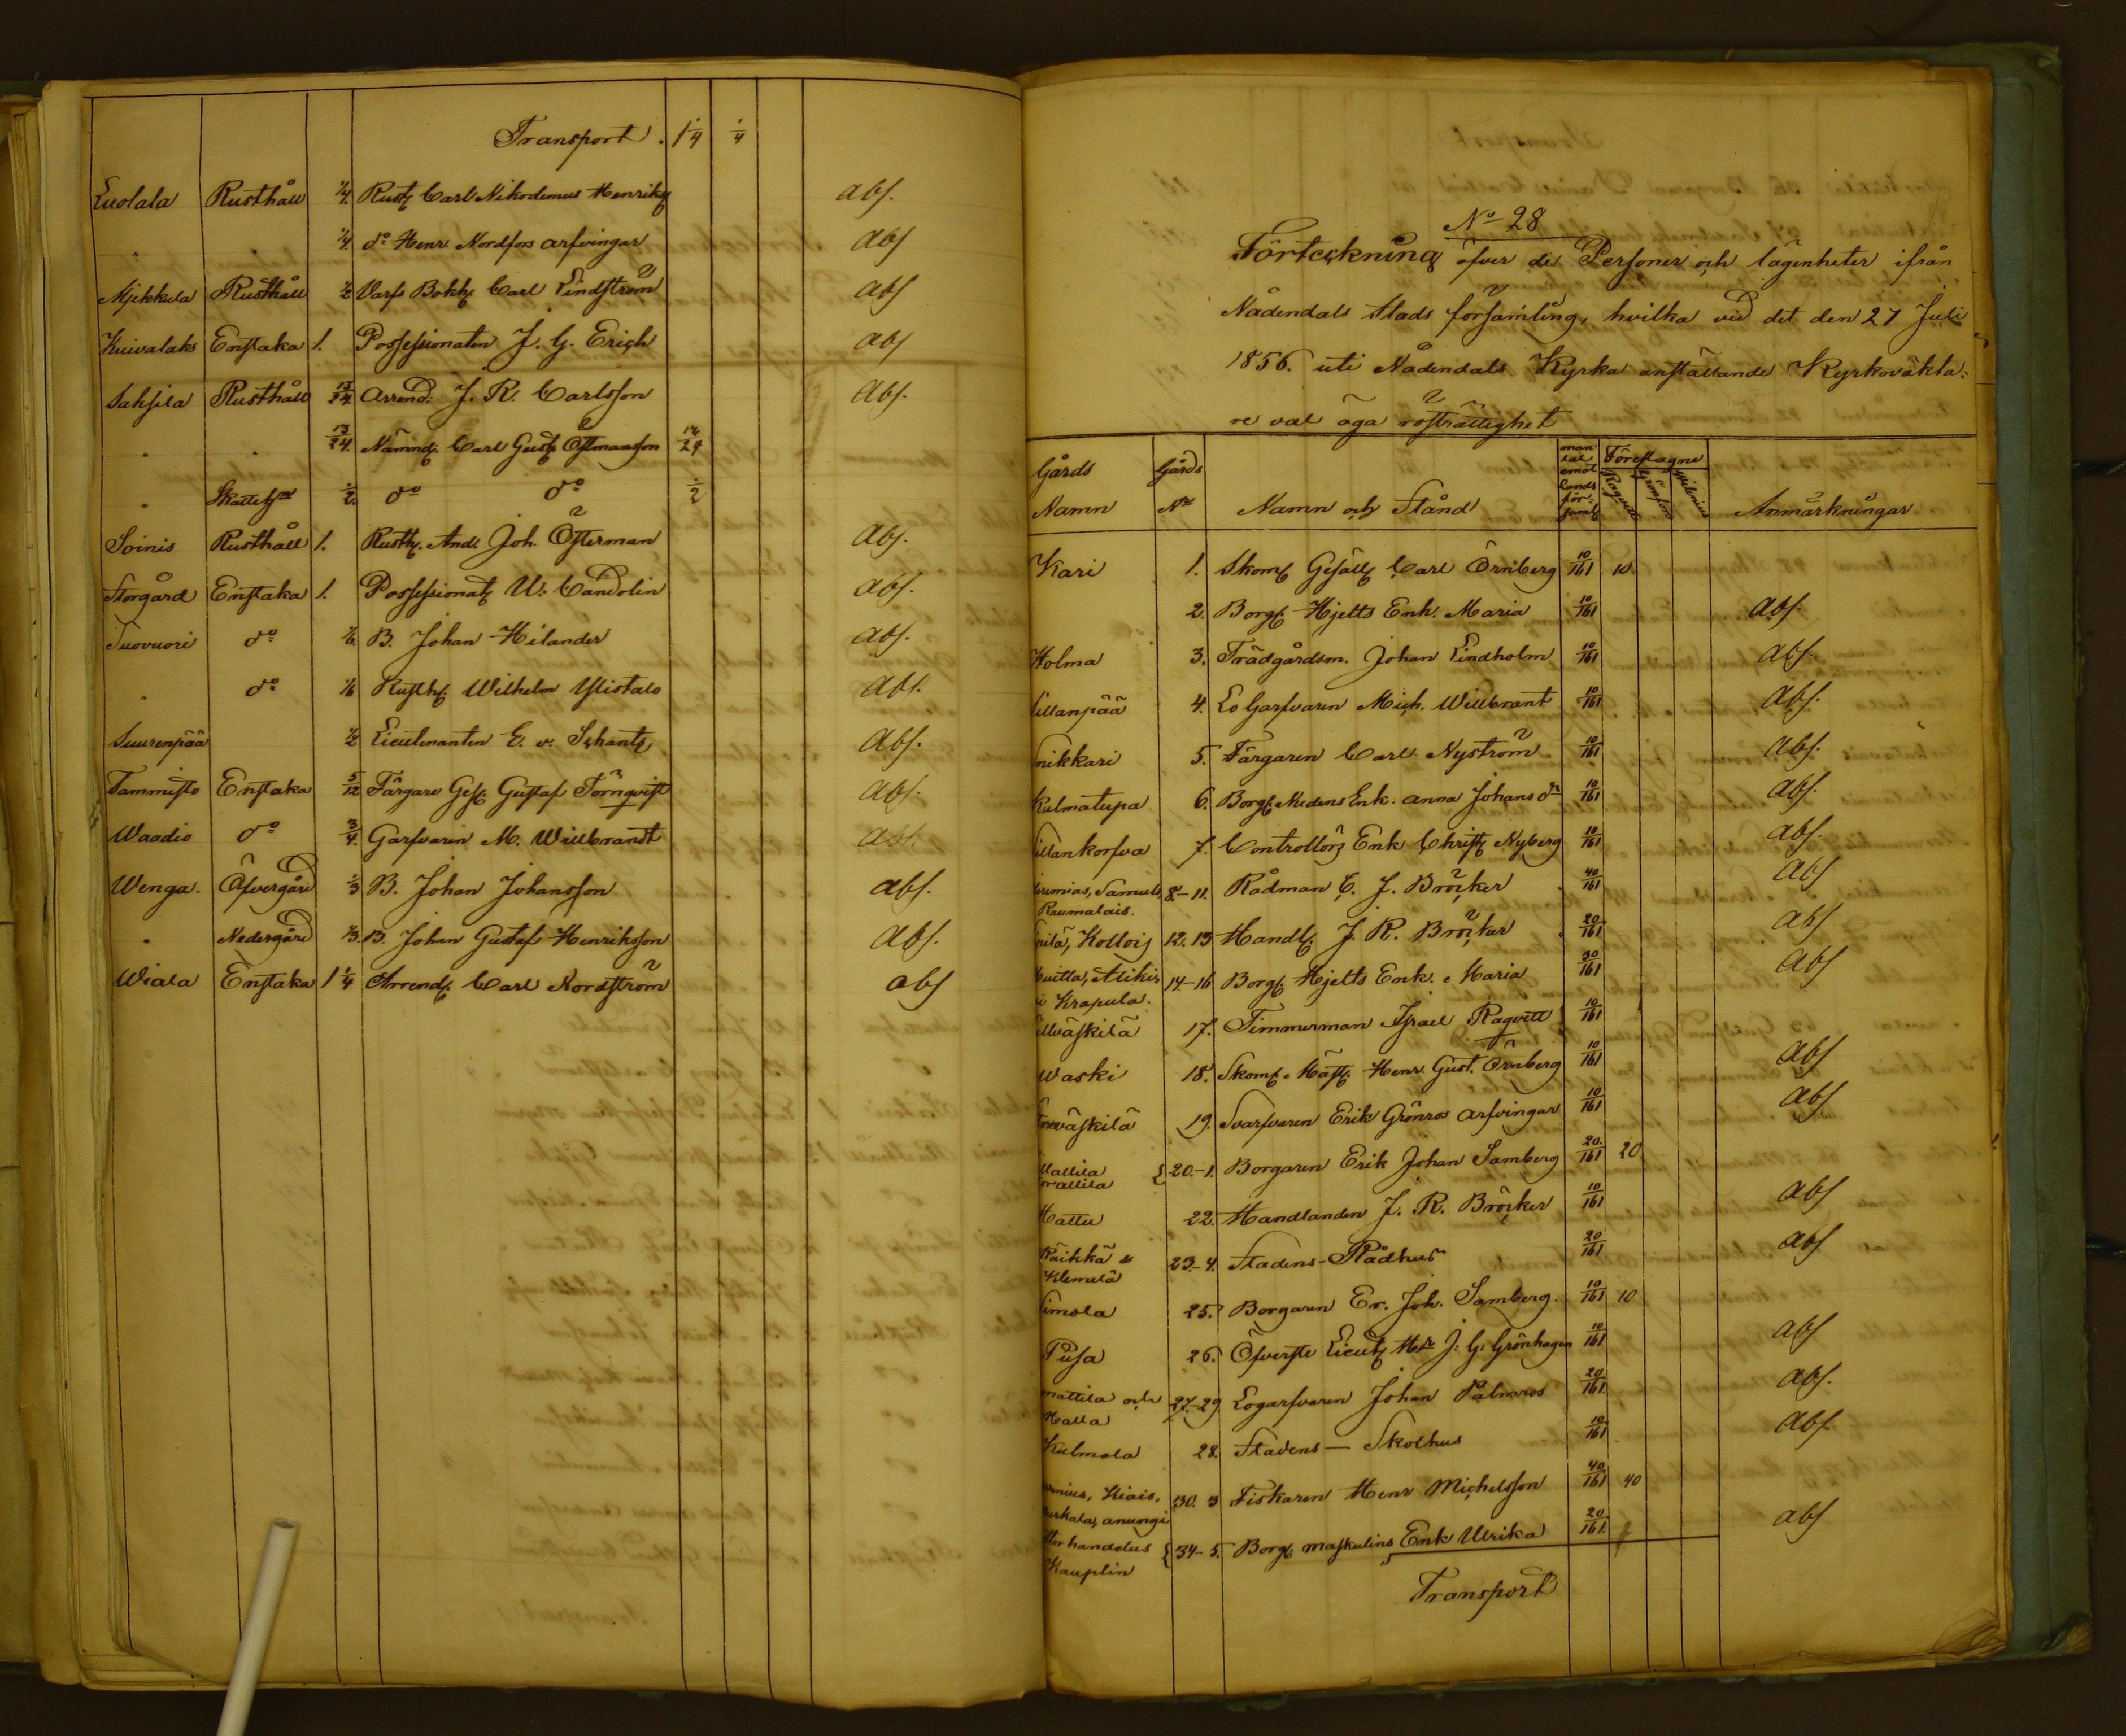 Transport . 1 1/4 1/4
Luolala Rusthåll 1/4. Rusth. Carl Nikodemus Henriks. abs.
" " 1/4. do Henr. Nordfors arfvingar abs
Rusthåll 1/2 Varfs Bokh. Carl Lindström abs
Kuivalaks Enstaka 1. Possessionaten J. G. Erich abs
Sahsila Rusthåll 13/24. Arrend. J. R. Carlsson abs.
" " 13/24. Nämnd. Carl Gust. Östmansson 13/24
" 1/2. do do 1/2
Soinis Rusthåll 1. Rusth. And. Joh. Österman Abs.
Storgård Enstaka 1. Possessionat. W. Candolin abs.
Tuovuori do 1/6. B. Johan Hilander abs.
" do 1/6 Rusth. Wilhelm Ylistalo abs.
Suurenpää 1/2 Lieutenanten E. v. Schantz Abs.
Tammisto Enstaka 5/12 Färgare Ges. Gustaf Törnqvist Abs.
Waadio do 3/4. Garfvaren M. Willbrandt abs.
Wenga. Öfvergård 1/3 B. Johan Johansson abs.
" Nedergård 1/3. B. Johan Gustaf Henriksson Abs.
Wiala Enstaka 1 1/4 Arrend. Carl Nordström abs
No 28
Förteckning öfver de Personer och lägenheter ifrån
Nådendals Stads församling, hvilka vid det den 27 Juli
1856. uti Nådendals Kyrka anställande Kyrkoväkta-
re val äga rösträttighet
Gårds Namn Gårds No Namn och Stånd mantal emot Lands församl. Föreslagne Ragvill Grönfors Anmärkningar
Kari 1. Skom. Gesäll. Carl Örnberg 10/161 10.
2. Borg. Hjelts Enk. Maria 10/161 Abs.
Holma 3. Trädgårdsm. Johan Lindholm 10/161 Abs.
Sillanpää 4. Lo Garfvaren Mich. Willbrant 10/161 Abs.
Snikkari 5. Färgaren Carl Nyström 10/161 Abs.
Kulmatupa 6. Borg. Enk. Anna Johans dr 10/161 abs.
Sillankorfva 7. Controllörs Enk Christ. Nyberg 10/161 abs.
Jeremias, Samuels, Raumalais. 8.-11. Rådman C. J. Bröcker 40/161 Abs
Kollois 12. 13 Handl. J. R. Bröcker 20/161 abs
Krapula. 14-16 Borg. Hjelts Enk. Maria 30/161 Abs
17. Timmerman Israel Ragvill 10/161
Waski 18. Skom. Mäst. Henr. Gust. Örnberg 10/161 Abs
19. Svarfvaren Erik Grönros arfvingar 10/161 Abs
20.-1. Borgaren Erik Johan Samberg 20/161 20
Hattu 22. Handlanden J. R. Bröcker 10/161 Abs
Räikkä & Klemelä 23-4. Stadens Rådhus 20/161 Abs
Simola 25. Borgaren Er. Joh. Samberg. 10/161 10
Pusa 26. Öfverste Lieut. J: G: Grönhagen 10/161 Abs
Mattila och Halla 27.-29 Logarfvaren Johan Palmros 20/161. Abs.
Kulmala 28. Stadens - Skolhus 10/161 Abs.
Kiais, anungi 30. 3 Fiskaren Henr Michelsson 40/161 40
Storhandelus Kauplin 34-5. Borg. Maskulins Enk Ulrika 20/161. abs
Transport